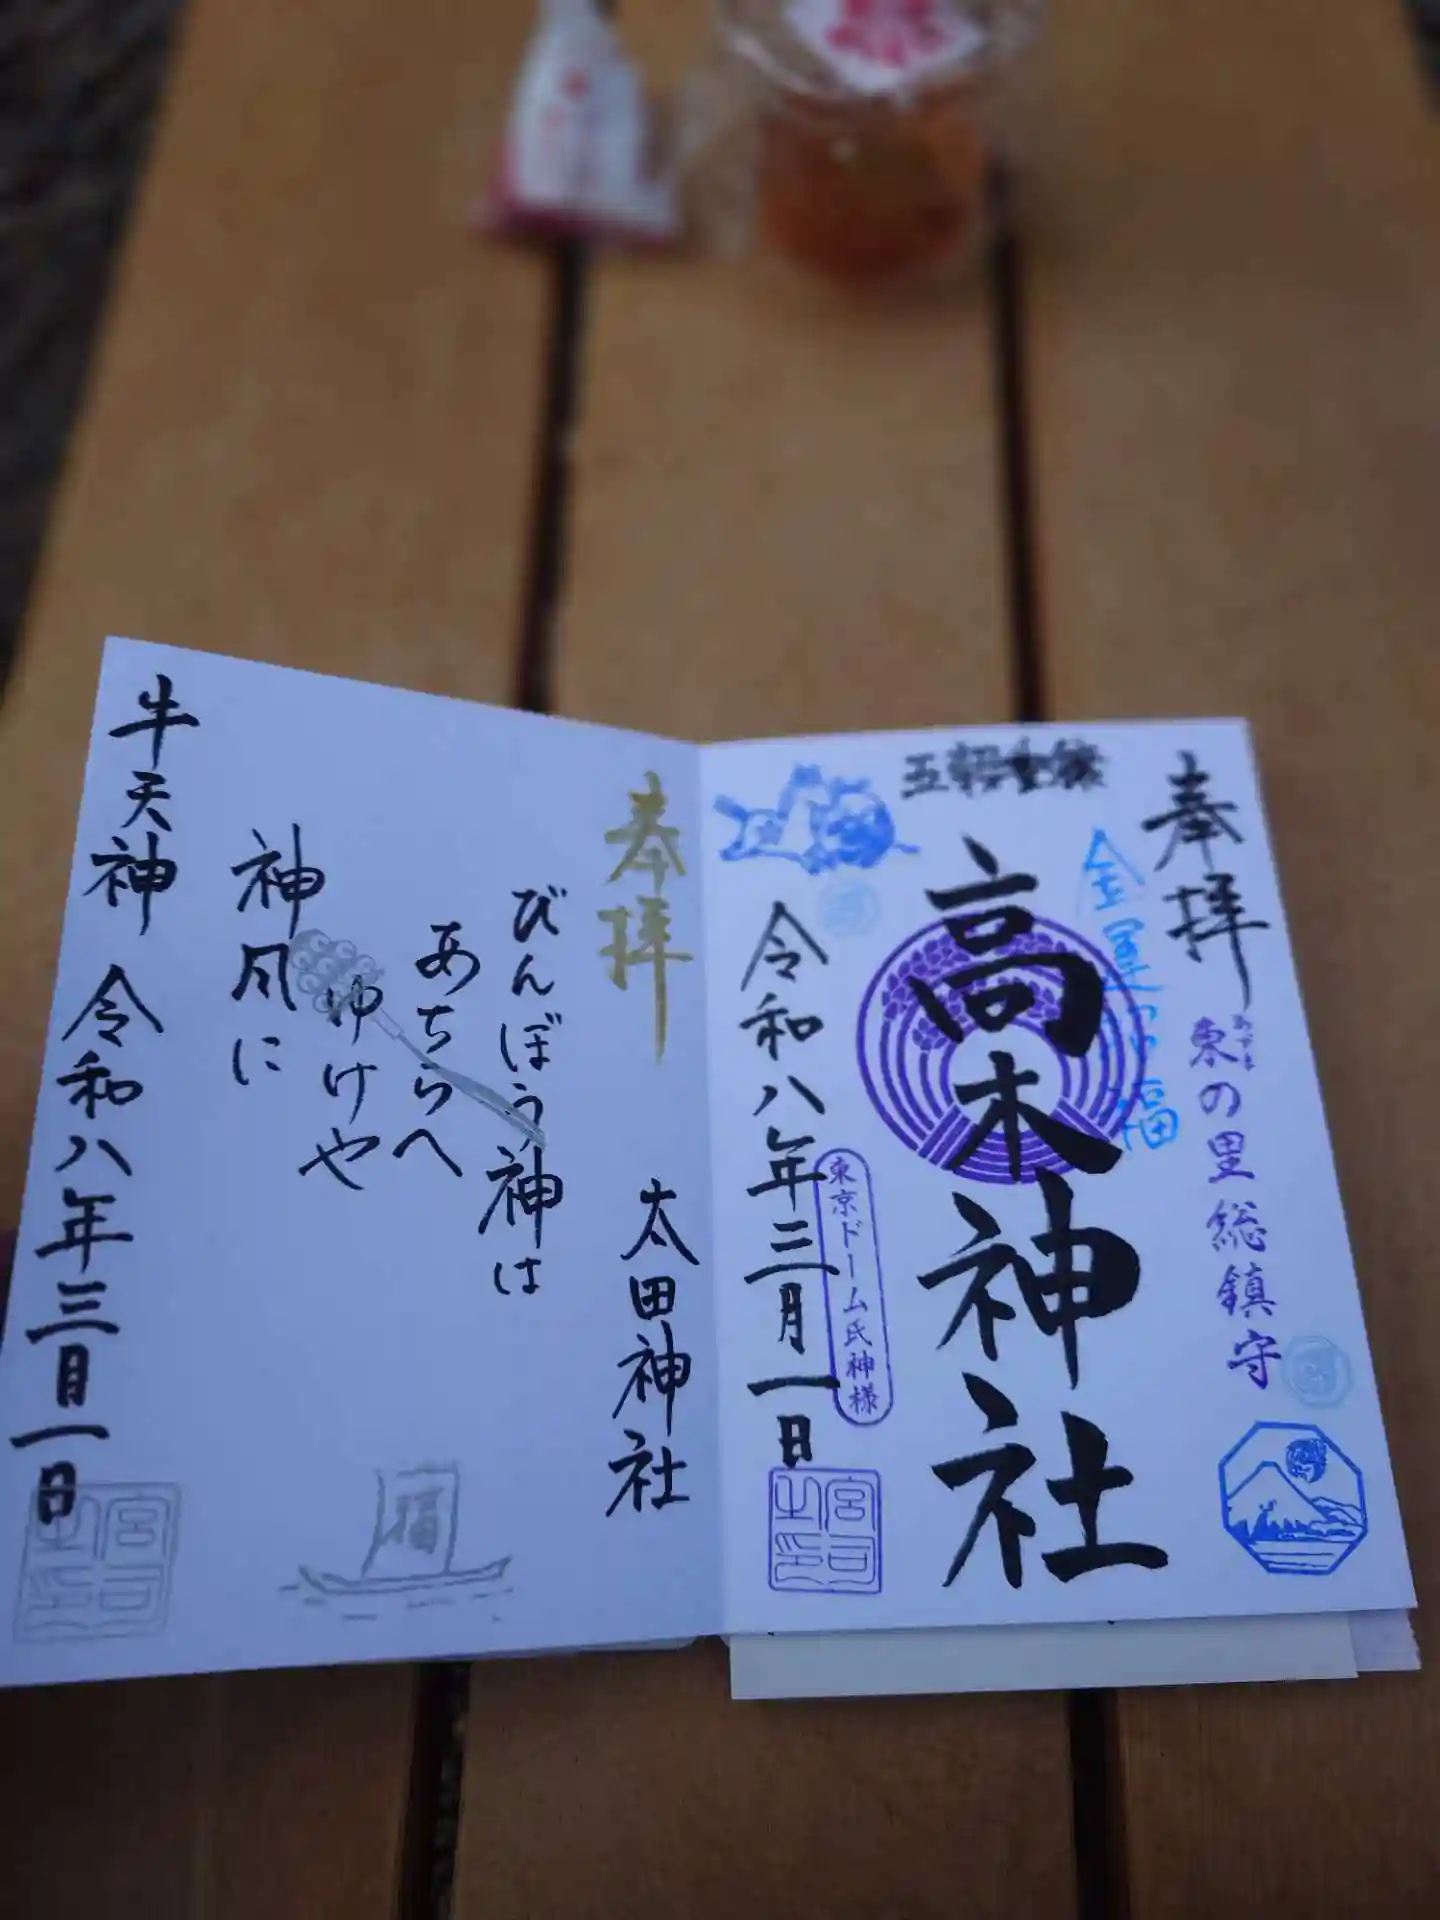 奉拝
東の里総鎮守
あづま
金運 福
高木神社
令和八年三月一日
東京ドーム氏神様
宮司之印
奉拝
太田神社
びんぼう神は
あちらへ
ゆけや
神風に
福
牛天神 令和八年三月一日
宮司之印